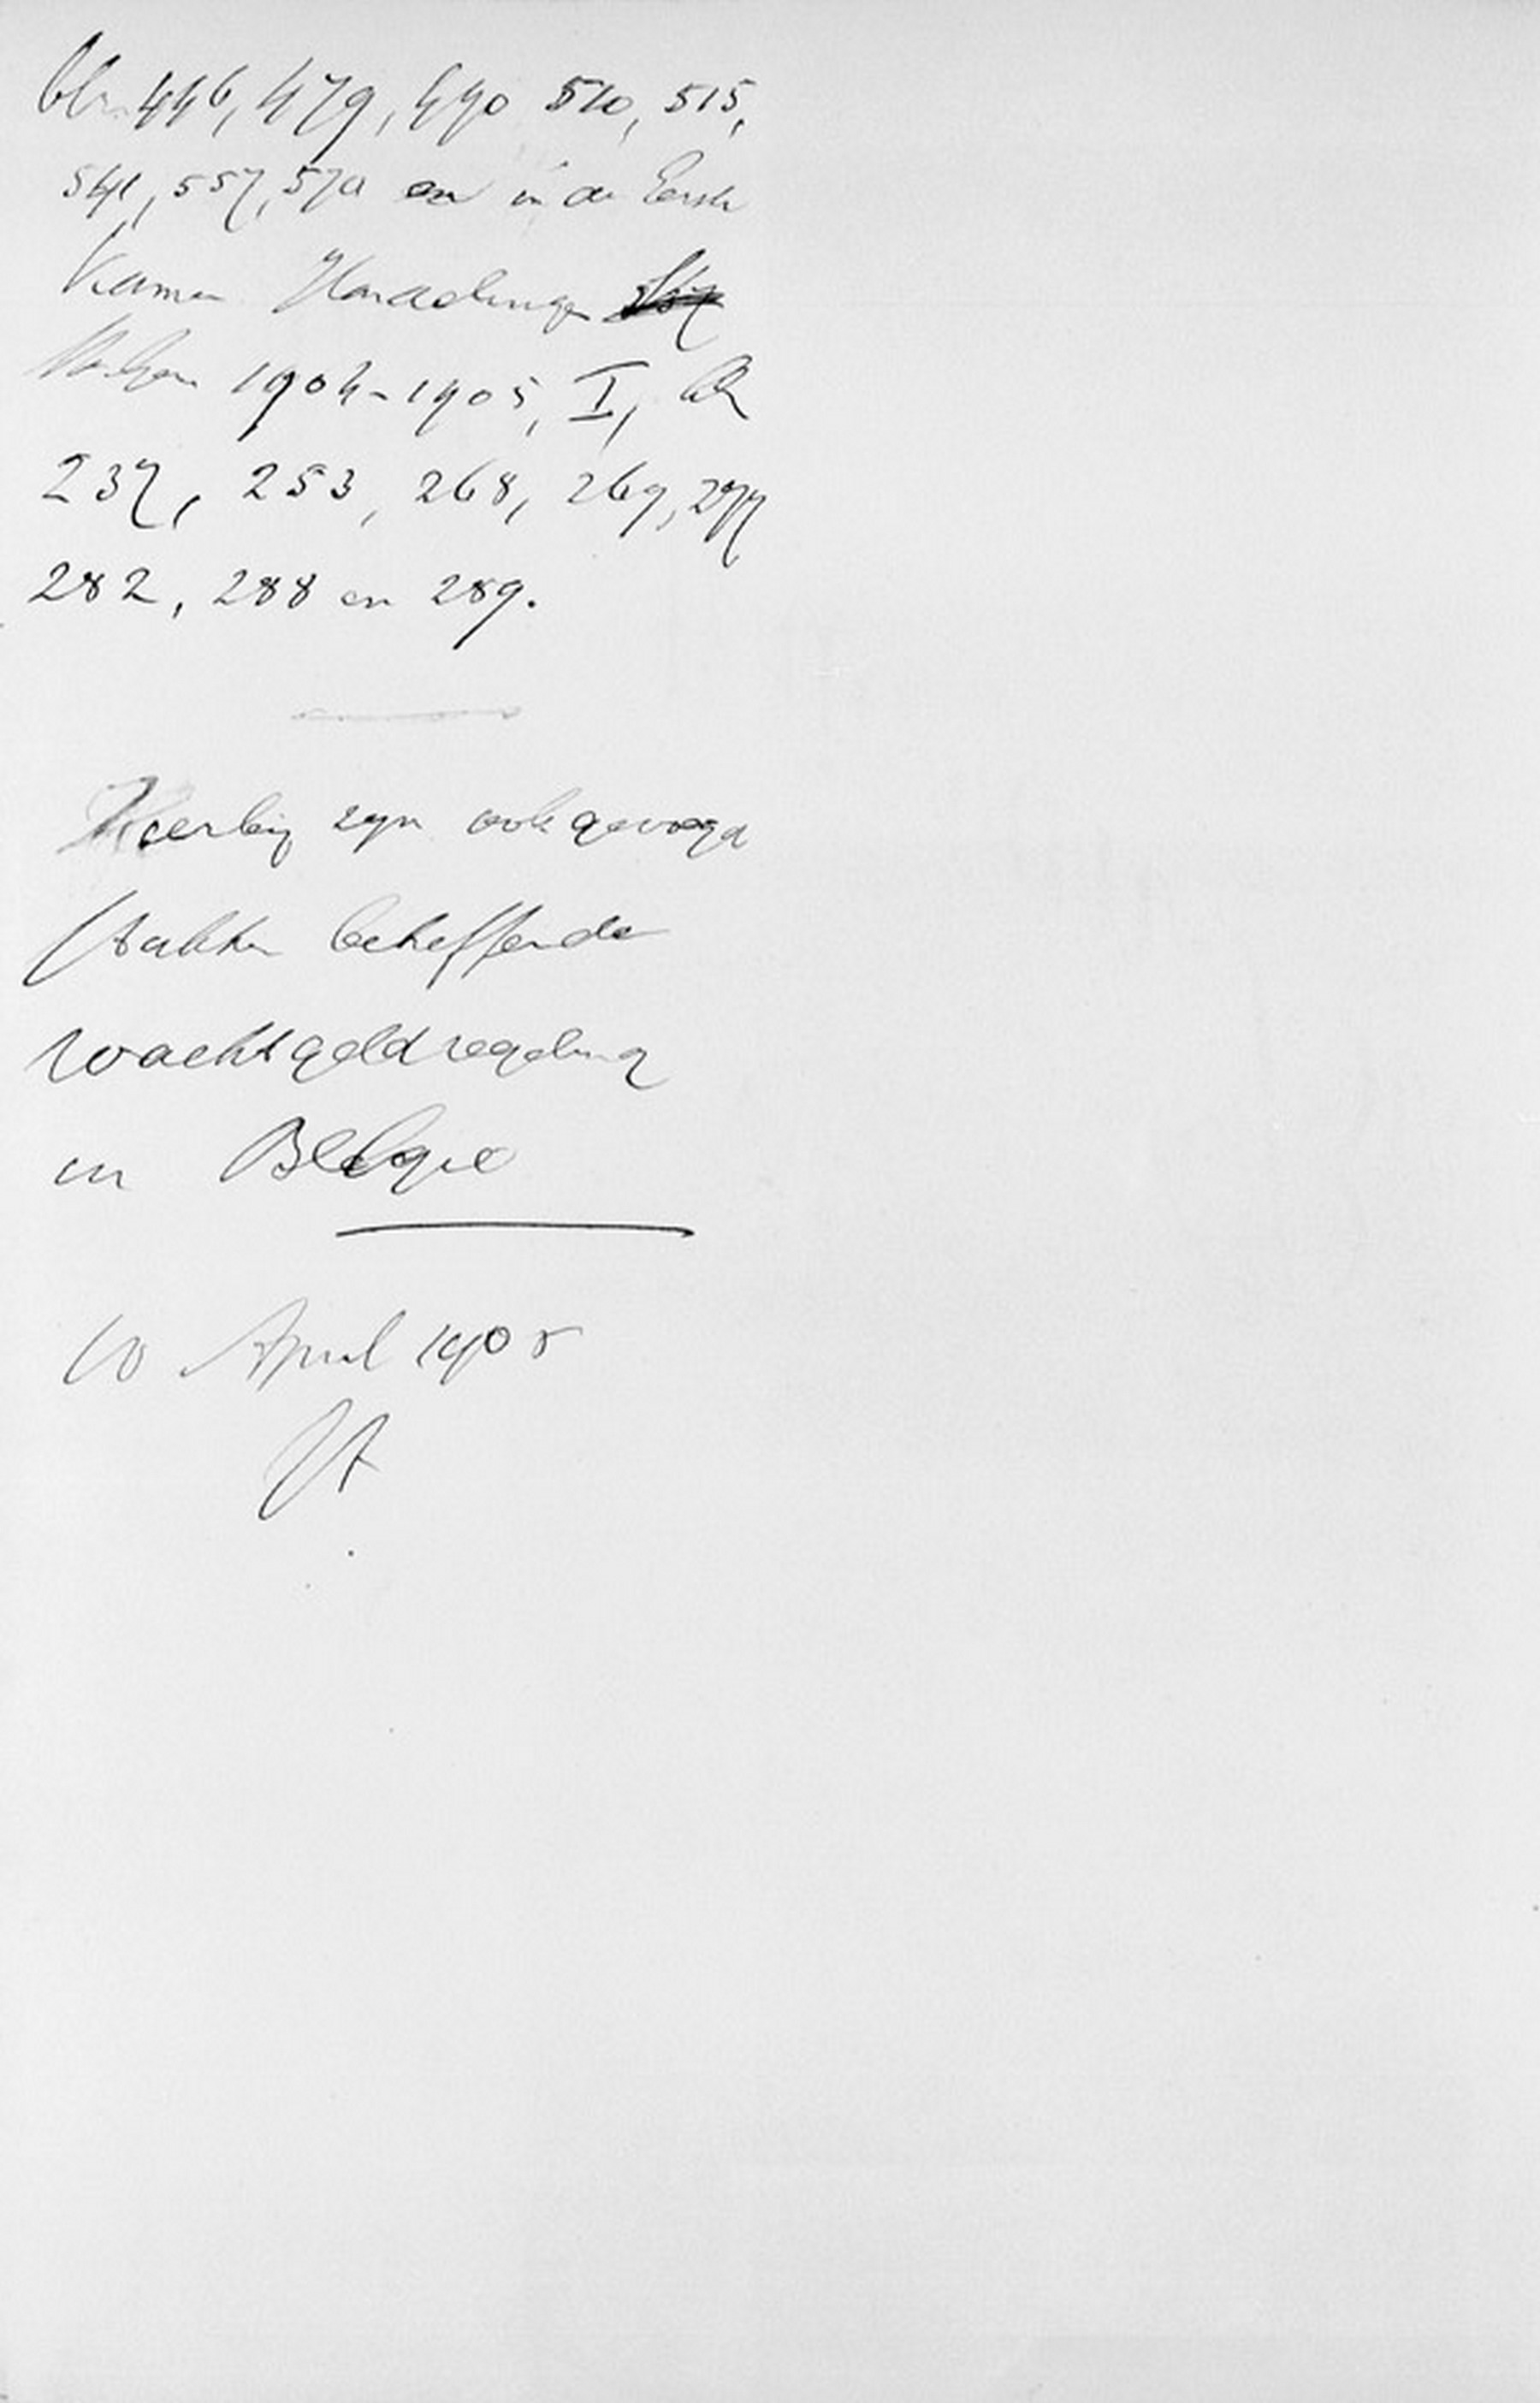 blz. 446, 479, 490 510, 515,
541, 557, 570 en in de Eerste
Kamer Handelingen
1904-1905, I, blz
237, 253, 268, 269, 277
282, 288 en 289.
Hierbij zijn ook gevoegd
stukken betreffende
wachtgeldregeling
in België
10 April 1905